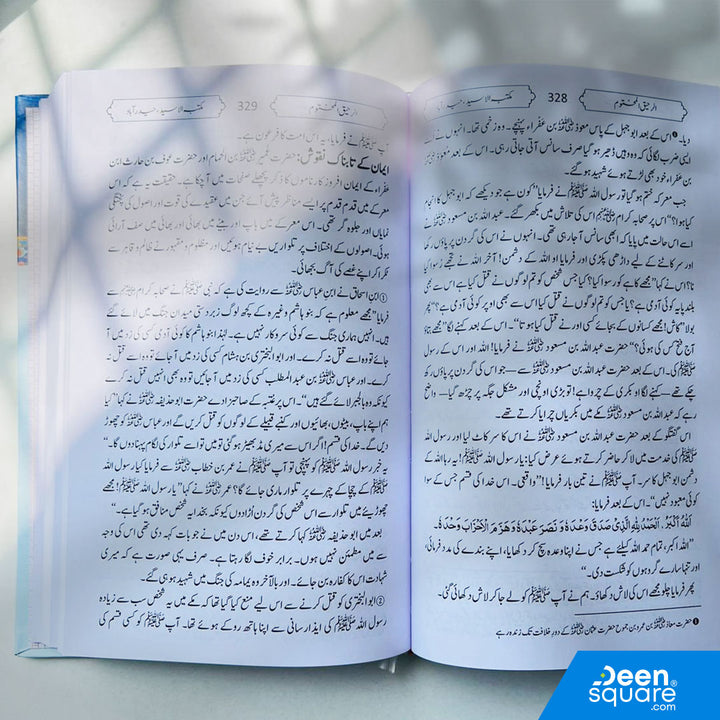 الرحیق المختوم
328
مکتبہ الاسید، حیدرآباد
دیا۔ ❶ اس کے بعد ابو جہل کے پاس معوذ رضی اللہ عنہ بن عفراء پہنچے۔ وہ زخمی تھا۔ انہوں نے اسے
ایسی ضرب لگائی کہ وہ وہیں ڈھیر ہو گیا صرف سانس آتی جاتی رہی۔ اس کے بعد معوذ
بن عفراء خود بھی لڑتے ہوئے شہید ہو گئے۔
جب معرکہ ختم ہو گیا تو رسول اللہ ﷺ نے فرمایا: "کون ہے جو دیکھے کہ ابو جہل کا انجام
کیا ہوا؟" اس پر صحابہ کرام اس کی تلاش میں بکھر گئے۔ عبد اللہ بن مسعود رضی اللہ عنہ نے
اسے اس حالت میں پایا کہ ابھی سانس آ جا رہی تھی۔ انہوں نے اس کی گردن پر پاؤں رکھا
اور سر کاٹنے کے لیے داڑھی پکڑی اور فرمایا او اللہ کے دشمن! آخر اللہ نے تجھے رسوا کیا
نا؟ اس نے کہا: "مجھے کاہے کو رسوا کیا؟ کیا جس شخص کو تم لوگوں نے قتل کیا ہے اس سے بھی
بلند پایہ کوئی آدمی ہے؟ یا جس کو تم لوگوں نے قتل کیا اس سے بھی اوپر کوئی آدمی ہے؟" پھر
بولا "کاش! مجھے کسانوں کے بجائے کسی اور نے قتل کیا ہوتا"۔ اس کے بعد کہنے لگا "مجھے بتاؤ
آج فتح کس کی ہوئی؟" حضرت عبد اللہ بن مسعود رضی اللہ عنہ نے فرمایا! اللہ اور اس کے رسول
کی۔ اس کے بعد حضرت عبد اللہ بن مسعود رضی اللہ عنہ سے — جو اس کی گردن پر پاؤں رکھ
چکے تھے — کہنے لگا او بکری کے چرواہے! تو بڑی اونچی اور مشکل جگہ پر چڑھ گیا — واضح
رہے کہ عبد اللہ بن مسعود رضی اللہ عنہ مکے میں بکریاں چرایا کرتے تھے۔
اس گفتگو کے بعد حضرت عبد اللہ بن مسعود رضی اللہ عنہ نے اس کا سر کاٹ لیا اور رسول اللہ
ﷺ کی خدمت میں لا کر حاضر کرتے ہوئے عرض کیا: یا رسول اللہ ﷺ! یہ رہا اللہ کے
دشمن ابو جہل کا سر۔ آپ ﷺ نے تین بار فرمایا: "واقعی۔ اس خدا کی قسم جس کے سوا
کوئی معبود نہیں"۔ اس کے بعد فرمایا:
اَللّٰهُ اَكْبَرُ، اَلْحَمْدُ لِلّٰهِ الَّذِيْ صَدَقَ وَعْدَهٗ وَ نَصَرَ عَبْدَهٗ وَ هَزَمَ الْاَحْزَابَ وَحْدَهٗ۔
"اللہ اکبر، تمام حمد اللہ کیلئے ہے جس نے اپنا وعدہ سچ کر دکھایا، اپنے بندے کی مدد فرمائی،
اور تنہا سارے گروہوں کو شکست دی۔"
پھر فرمایا چلو مجھے اس کی لاش دکھاؤ۔ ہم نے آپ ﷺ کو لے جا کر لاش دکھائی گئی۔
❶ حضرت معاذ رضی اللہ عنہ بن عمرو بن جموح حضرت عثمان رضی اللہ عنہ کے دور خلافت تک زندہ رہے
الرحیق المختوم
329
مکتبہ الاسید، حیدرآباد
آپ ﷺ نے فرمایا: یہ اس امت کا فرعون ہے۔
ایمان کے تابناک نقوش: حضرت عمیر رضی اللہ عنہ بن الحمام اور حضرت عوف بن حارث ابن
عفراء کے ایمان افروز کارناموں کا ذکر پچھلے صفحات میں آ چکا ہے۔ حقیقت یہ ہے کہ اس
معرکے میں قدم قدم پر ایسے مناظر پیش آئے جن میں عقیدے کی قوت اور اصول کی پختگی
نمایاں اور جلوہ گر تھی۔ اس معرکے میں باپ اور بیٹے میں بھائی اور بھائی میں صف آرائی
ہوئی۔ اصولوں کے اختلاف پر تلواریں بے نیام ہوئیں اور مظلوم و مقہور نے ظالم و قاہر سے
ٹکرا کر اپنے غصے کی آگ بجھائی۔
① ابن اسحاق نے ابن عباس رضی اللہ عنہ سے روایت کی ہے کہ نبی ﷺ نے صحابہ کرام سے
فرمایا: "مجھے معلوم ہے کہ بنو ہاشم وغیرہ کے کچھ لوگ زبردستی میدان جنگ میں لائے گئے
ہیں۔ انہیں ہماری جنگ سے کوئی سروکار نہیں ہے۔ لہٰذا بنو ہاشم کا کوئی آدمی کسی کی زد میں آ
جائے تو وہ اسے قتل نہ کرے۔ اور ابو البختری بن ہشام کسی کی زد میں آ جائے تو وہ اسے قتل نہ
کرے۔ اور عباس رضی اللہ عنہ بن عبد المطلب کسی کی زد میں آ جائیں تو وہ بھی انہیں قتل نہ کرے
کیونکہ وہ بالجبر لائے گئے ہیں"۔ اس پر عتبہ کے صاحبزادے حضرت ابو حذیفہ رضی اللہ عنہ نے کہا "کیا
ہم اپنے باپ، بیٹوں، بھائیوں اور کنبے قبیلے کے لوگوں کو قتل کریں گے اور عباس رضی اللہ عنہ کو چھوڑ
دیں گے۔ خدا کی قسم! اگر اس سے میری مڈبھیڑ ہو گئی تو میں تو اسے تلوار کی لگام پہنا دوں گا۔"
یہ خبر رسول اللہ ﷺ کو پہنچی تو آپ ﷺ نے عمر بن خطاب رضی اللہ عنہ سے فرمایا کیا رسول اللہ
ﷺ کے چچا کے چہرے پر تلوار ماری جائے گا؟ عمر رضی اللہ عنہ نے کہا "یا رسول اللہ ﷺ! مجھے
چھوڑیئے میں تلوار سے اس شخص کی گردن اڑا دوں کیونکہ بخدا یہ شخص منافق ہو گیا ہے۔"
بعد میں ابو حذیفہ رضی اللہ عنہ کہا کرتے تھے، اس دن میں نے جو بات کہہ دی تھی اس کی وجہ
سے میں مطمئن نہیں ہوں۔ برابر خوف لگا رہتا ہے۔ صرف یہی صورت ہے کہ میری
شہادت اس کا کفارہ بن جائے۔ اور بالآخر وہ یمامہ کی جنگ میں شہید ہو ہی گئے۔
② ابو البختری کو قتل کرنے سے اس لیے منع کیا گیا تھا کہ مکے میں یہ شخص سب سے زیادہ
رسول اللہ ﷺ کی ایذا رسانی سے اپنا ہاتھ روکے ہوئے تھا۔ آپ ﷺ کو کسی قسم کی
Deen
square®
.com